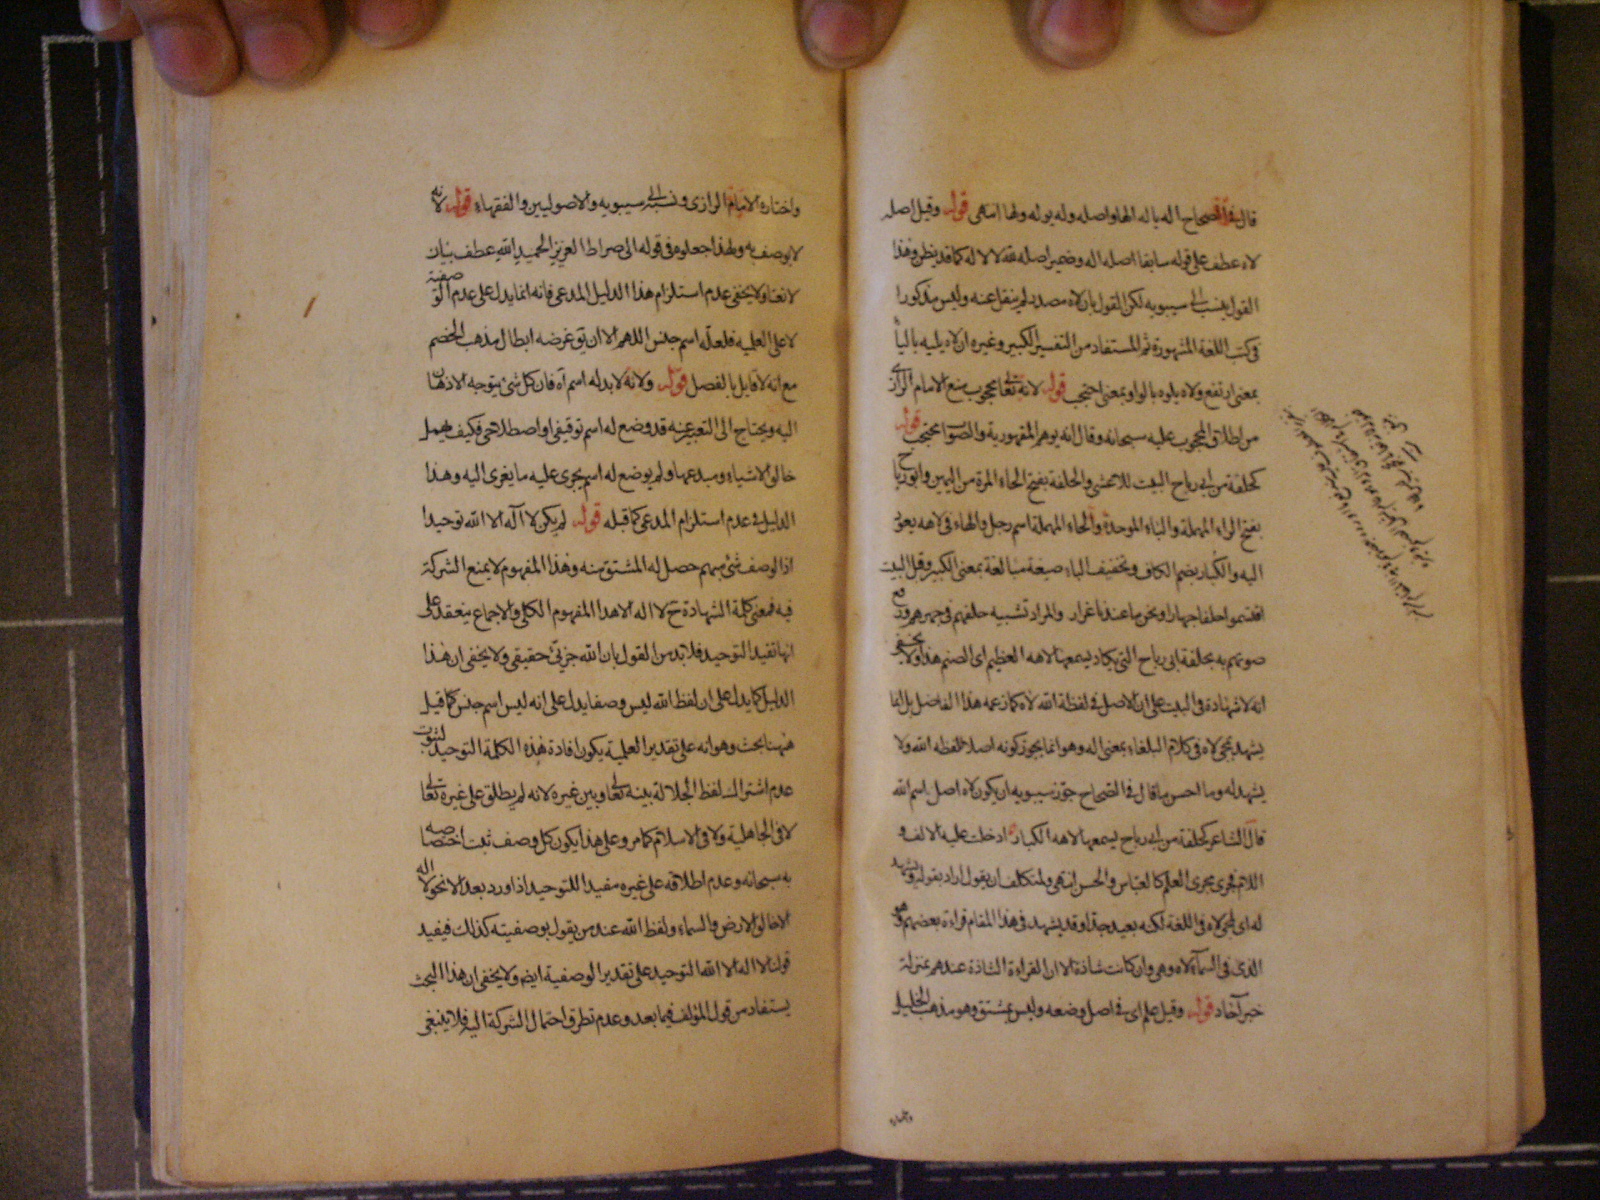 قال في الصحاح اله ياله الها واصله وله يوله ولها انتهى قوله وقيل اصله
لاه عطف على قوله سابقا اصله اله وضمير اصله لله لا لاله كما قد يظن وهذا
القول ينسب الى سيبويه لكن القول بان لاه مصدر لم ينقل عنه وليس مذكورا
في كتب اللغة المشهورة ثم المستفاد من التفسير الكبير وغيره ان لاه يليه بالياء
بمعنى ارتفع ولاه يلوه بالواو بمعنى احتجب قوله لانه تعالى محجوب منع الامام الرازي
من اطلاق المحجوب عليه سبحانه وقال انه يوهم المقهورية والصواب محتجب قوله
كحلفة من ابي رباح البيت للاعشى والحلفة بفتح الحاء المرة من اليمين وابو رباح
بفتح الراء المهملة والباء الموحدة والحاء المهملة اسم رجل والهاء في لاهه يعود
اليه والكبار بضم الكاف وتخفيف الباء صيغة مبالغة بمعنى الكبير وقبل البيت
اقسموا حلفا جهارا ونحن ما عندنا غرار والمراد تشبيه حلفهم في جهرهم ورفع
صوتهم به بحلفة ابي رباح التي يكاد يسمعها لاهه العظيم اي الصنم هذا ولا يخفى
انه لا شهادة في البيت على ان الاصل في لفظة الله لاه كما زعمه هذا الفاضل بل انما
يشهد بمجئ لاه في كلام البلغاء بمعنى اله وهو انما يجوز كونه اصلا للفظة الله ولا
يشهد له وما احسن ما قال في الصحاح جوز سيبويه ان يكون لاه اصل اسم الله
قال الشاعر كحلفة من ابي رباح يسمعها لاهه الكبار ادخلت عليه الالف و
اللام فجرى مجرى العلم كالعباس والحسن انتهى ولمتكلف ان يقول اراد بقوله ويشهد
له اي لمجئ لاه في اللغة لكنه بعيد جدا وقد يشهد في هذا المقام قراءة بعضهم وهو
الذي في السماء لاه وهي وان كانت شاذة الا ان القراءة الشاذة عندهم بمنزلة
خبر آحاد قوله وقيل علم اي في اصل وضعه وليس بمشتق وهو مذهب الخليل
واختاره
واختاره الامام الرازي ونسبه الى سيبويه والاصوليين والفقهاء قوله لانه
لا يوصف به ولهذا جعلوه في قوله الى صراط العزيز الحميد الله عطف بيان
لا نعتا ولا يخفى عدم استلزام هذا الدليل المدعى فانه انما يدل على عدم الوصفية
لا على العلمية فلعله اسم جنس اللهم الا ان يق غرضه ابطال مذهب الخصم
مع انه لا قايل بالفصل قوله ولانه لا بد له اسم آه فان كل شئ يتوجه الاذهان
اليه ويحتاج الى التعبير عنه قد وضع له اسم توقيفي او اصطلاحي فكيف يهمل
خالق الاشياء ومبدعها ولم يوضع له اسم يجرى عليه ما يعزى اليه وهذا
الدليل في عدم استلزام المدعى كما قبله قوله لم يكن لا آله الا الله توحيدا
اذ الوصف شئ مبهم حصل له المشتق منه وهذا المفهوم لا يمنع الشركة
فيه فمعنى كلمة الشهادة ح لا اله الا هذا المفهوم الكلي والاجماع ينعقد على
انها تفيد التوحيد فلا بد من القول بان الله جزئي حقيقي ولا يخفى ان هذا
الدليل كما يدل على ان لفظ الله ليس وصفا يدل على انه ليس اسم جنس كما قيل
ههنا بحث وهو انه على تقدير العلمية يكون افادة هذه الكلمة التوحيد لثبوت
عدم اشتراك لفظ الجلالة بينه تعالى وبين غيره لانه لم يطلق على غيره تعالى
لا في الجاهلية ولا في الاسلام كما مر وعلى هذا يكون كل وصف ثبت اختصاصه
به سبحانه وعدم اطلاقه على غيره مفيدا للتوحيد اذا ورد بعد الا نحو لا اله
الا خالق الارض والسماء ولفظ الله عند من يقول بوصفيته كذلك فيفيد
قولنا لا اله الا الله التوحيد على تقدير الوصفية ايضا ولا يخفى ان هذا البحث
يستفاد من قول المؤلف فيما بعد وعدم تطرق احتمال الشركة اليه فلا ينبغي